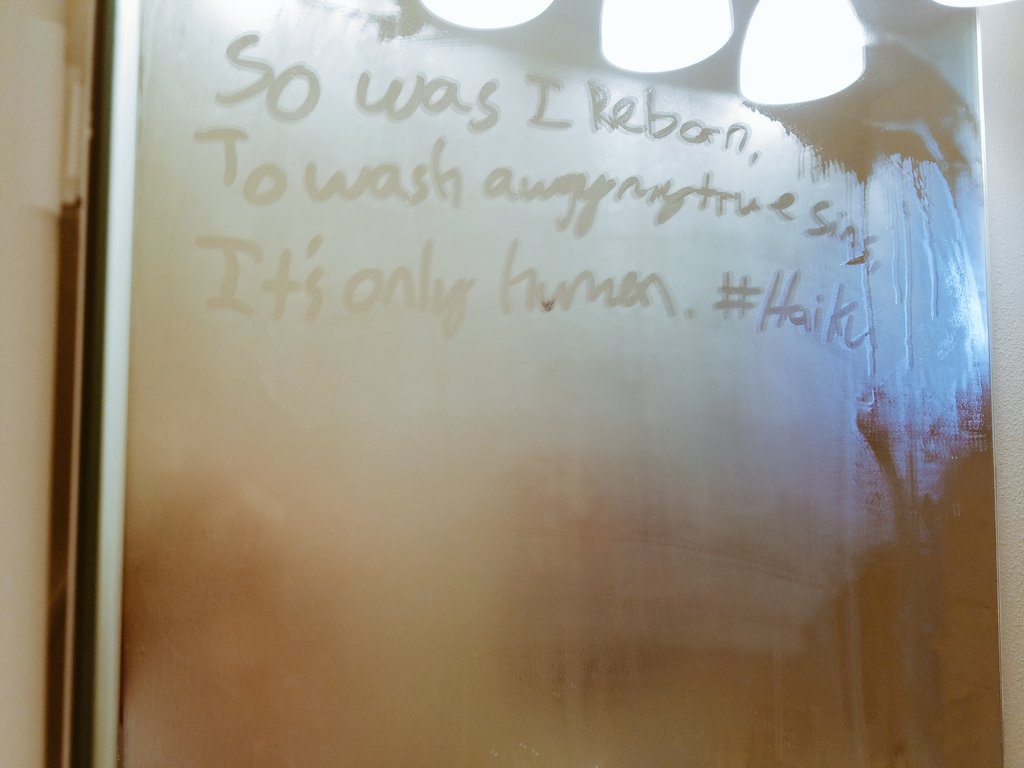 So was I Reborn,
To wash away my true sins,
It's only human. #Haiku